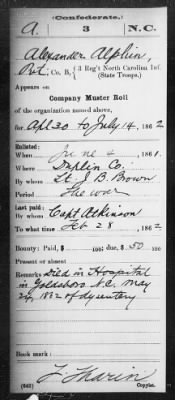 (Confederate.)
A. 3 N.C.
Alexander Alphin,
Pvt, Co. B, 3 Reg't North Carolina Inf.
(State Troops.)
Appears on
Company Muster Roll
of the organization named above,
for Apl 30 to July 14, 1862
Enlisted:
When June 4, 1861.
Where Duplin Co.
By whom Lt. J. B. Brown
Period The war
Last paid:
By whom Capt Atkinson
To what time Feb 28, 1862
Bounty: Paid, $ 100; due, $ 50 100
Present or absent
Remarks: Died in Hospital
in Goldsboro N.C. May
24, 1862 of dysentery
Book mark:
(642) Copyist.